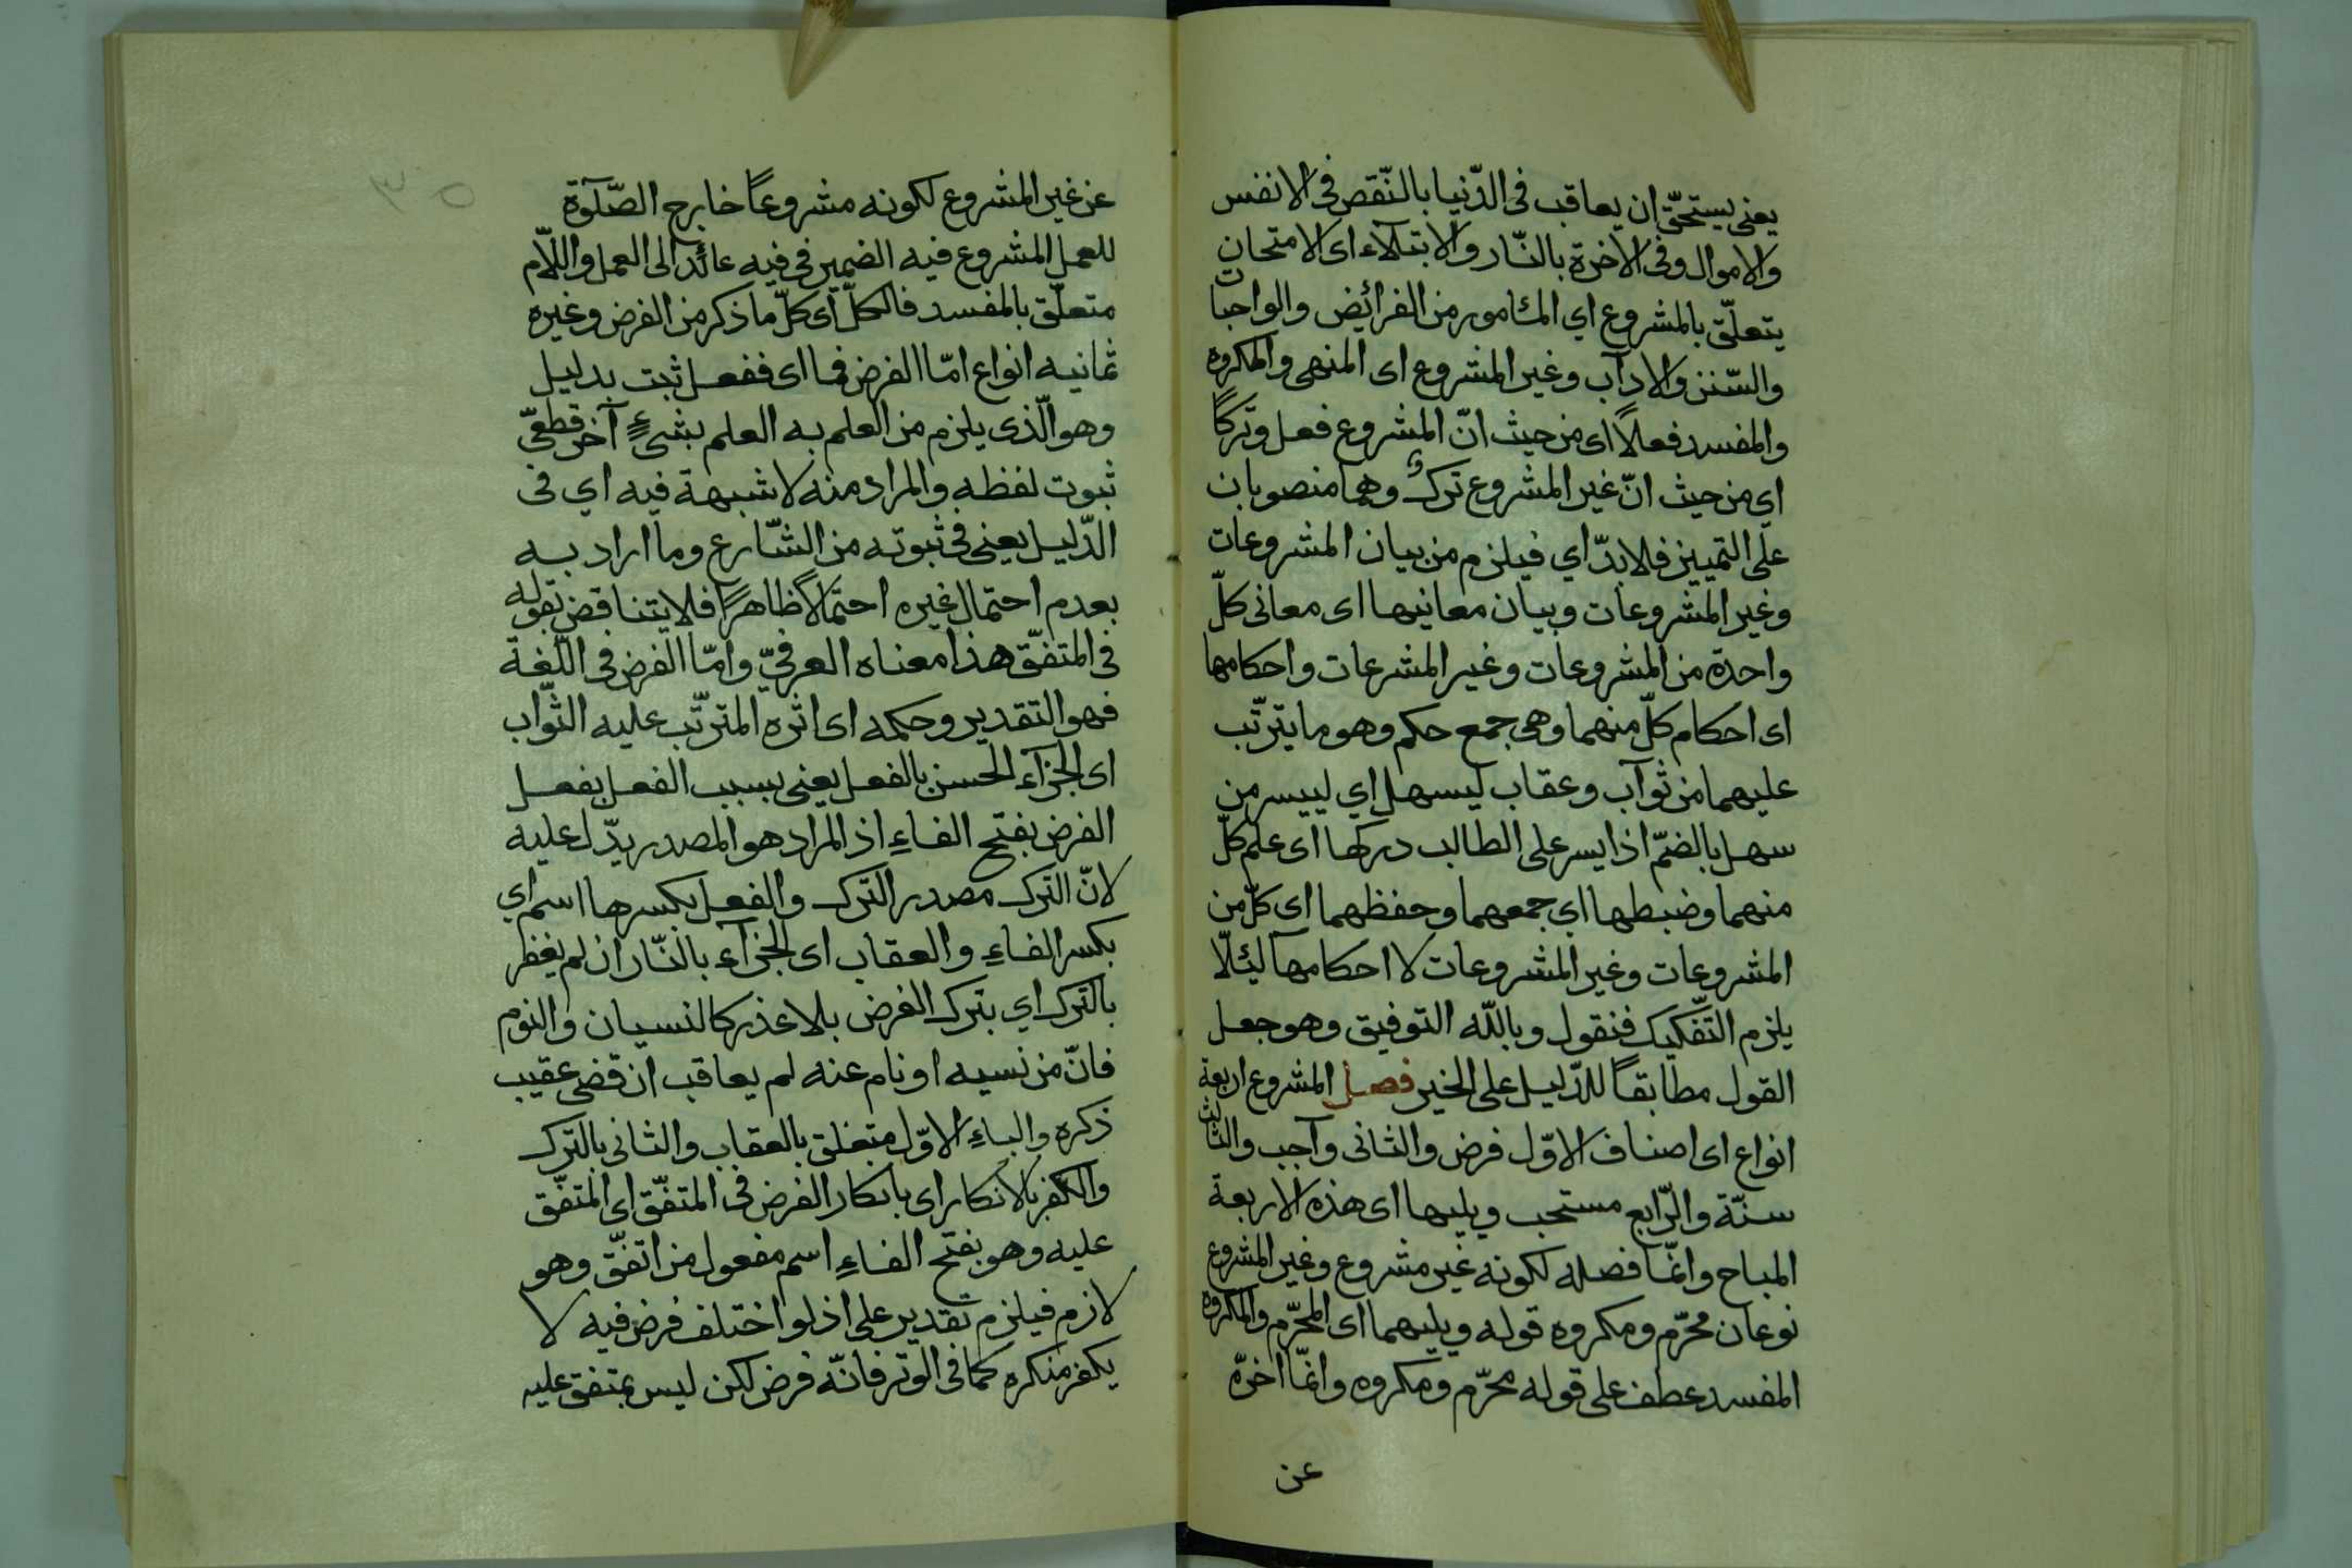 يعنى يستحقّ ان يعاقب فى الدّنيا بالنّقص فى الانفس
والاموال وفى الاخرة بالنّار والابتلاء اى الامتحان
يتعلّق بالمشروع اي المأمور من الفرائض والواجبات
والسّنن والاداب وغير المشروع اى المنهى والمكروه
والمفسد فعلاً اى من حيث انّ المشروع فعل وتركاً
اي من حيث انّ غير المشروع تركٌ وهما منصوبان
على التمييز فلا بدّ اي فيلزم من بيان المشروعات
وغير المشروعات وبيان معانيها اى معانى كلّ
واحدة من المشروعات وغير المشرعات واحكامها
اى احكام كلّ منهما وهى جمع حكم وهو ما يترتّب
عليهما من ثوآب وعقاب ليسهل اي لييسر من
سهل بالضمّ اذا يسر على الطالب دركها اى علم كلّ
منهما وضبطها اي جمعهما وحفظهما اى كلّ من
المشروعات وغير المشروعات لا احكامها لئلّا
يلزم التّفكيك فنقول وباللّه التوفيق وهو جعل
القول مطابقاً للدّليل على الخير فصل المشروع اربعة
انواع اى اصناف الاوّل فرض والثانى وآجب والثالث
سنّة والرّابع مستحب ويليها اى هذه الاربعة
المباح وانّما فصله لكونه غير مشروع وغير المشروع
نوعان محرّم ومكروه قوله ويليهما اى المحرّم والمكروه
المفسد عطف على قوله محرّم ومكروه وانّما اخرّه
عن
عن غير المشروع لكونه مشروعاً خارج الصّلوة
للعمل المشروع فيه الضمير فى فيه عائد الى العمل واللّام
متعلّق بالمفسد فالكلّ اى كلّ ما ذكر من الفرض وغيره
ثمانيه انواع امّا الفرض فما اى ففعل ثبت بدليل
وهو الّذى يلزم من العلم به العلم بشيءٍ آخر قطعىّ
ثبوت لفظه والمراد منه لا شبهة فيه اي فى
الدّليل يعنى فى ثبوته من الشّارع وما اراد به
بعدم احتمال غيره احتمالاً ظاهراً فلا يتناقض بقوله
فى المتفّق هذا معناه العرفيّ وامّا الفرض فى اللّغة
فهو التقدير وحكمه اى اثره المترتّب عليه الثّواب
اى الجزآء الحسن بالفعل يعنى بسبب الفعل بفعل
الفرض بفتح الفاءِ اذ المراد هو المصدر يدّل عليه
لانّ الترك مصدر الترك والفعل بكسرها اسم اي
بكسر الفاءِ والعقاب اى الجزآء بالنّار ان لم يغفر
بالترك اي بترك الفرض بلا عذر كالنسيان والنوم
فانّ من نسيه او نام عنه لم يعاقب ان قضى عقيب
ذكره والباءِ الاوّل متعلق بالعقاب والثانى بالترك
والكفر بالانكار اى بانكار الفرض فى المتفّق اى المتفّق
عليه وهو بفتح الفاءِ اسم مفعول من اتفّق وهو
لازم فيلزم تقدير على اذ لو اختلف فرض فيه لا
يكفر منكره كما فى الوتر فانّه فرض لكن ليس بمتفق عليه